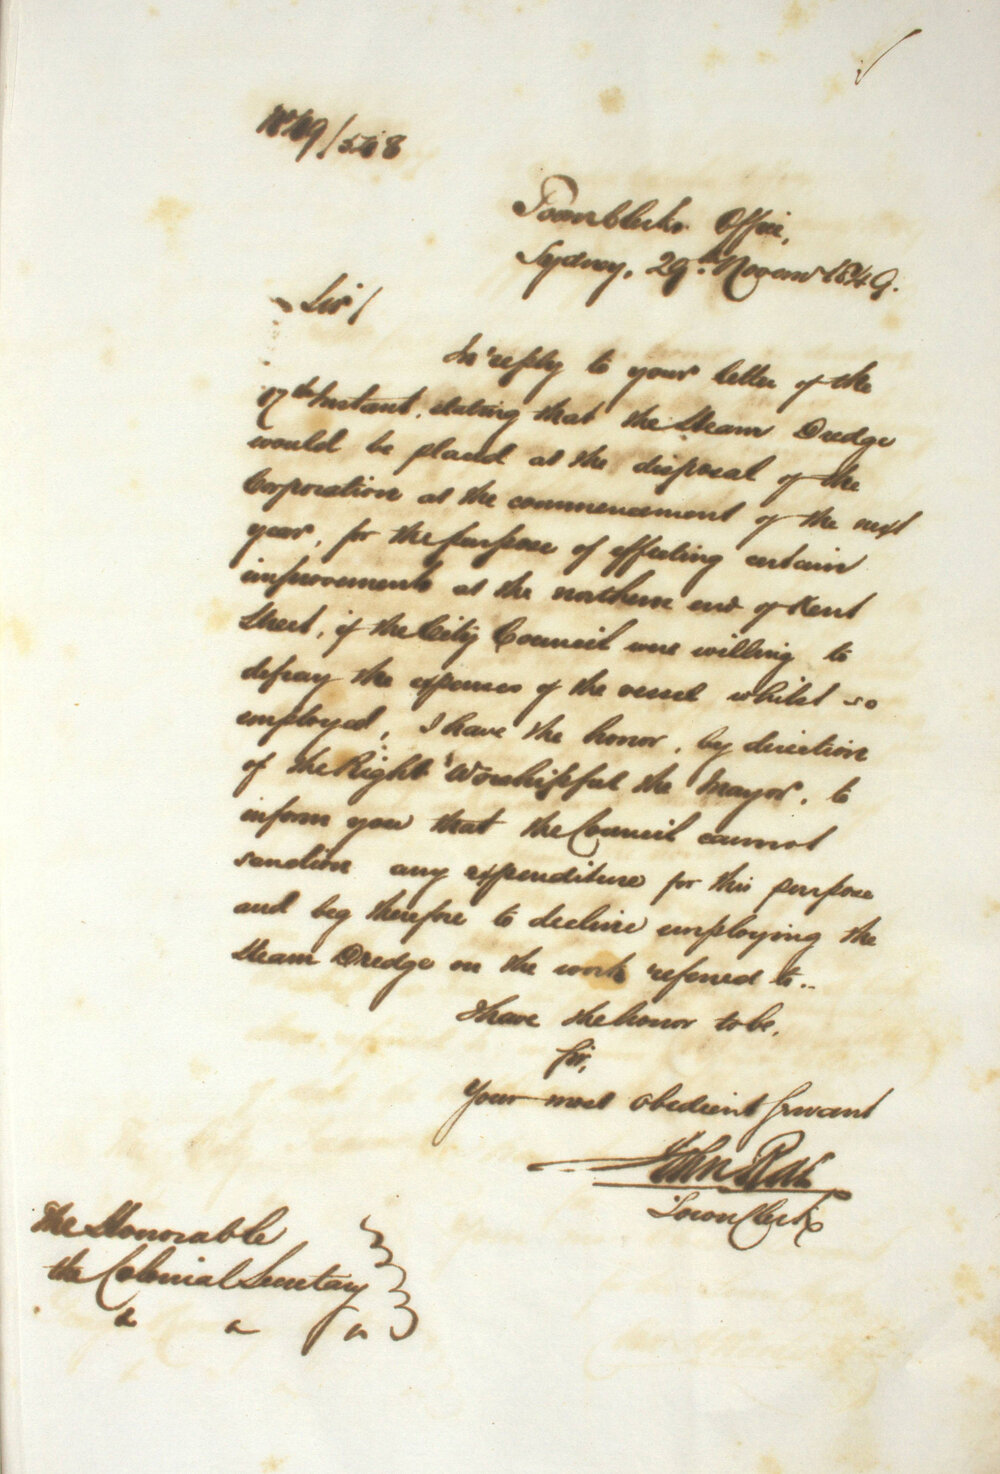 1849/568
Town Clerks Office,
Sydney, 29th Novemr 1849.
Sir/
In reply to your letter of the
17th Instant, stating that the Steam Dredge
would be placed at the disposal of the
Corporation at the commencement of the next
year, for the purpose of effecting certain
improvements at the northern end of Kent
Street, if the City Council were willing to
defray the expenses of the vessel whilst so
employed, I have the honor, by direction
of the Right Worshipful the Mayor, to
inform you that the Council cannot
sanction any expenditure for this purpose
and beg therefore to decline employing the
Steam Dredge on the work referred to..
I have the honor to be,
Sir,
Your most obedient Servant
John Rae
Town Clerk
The Honorable
the Colonial Secretary